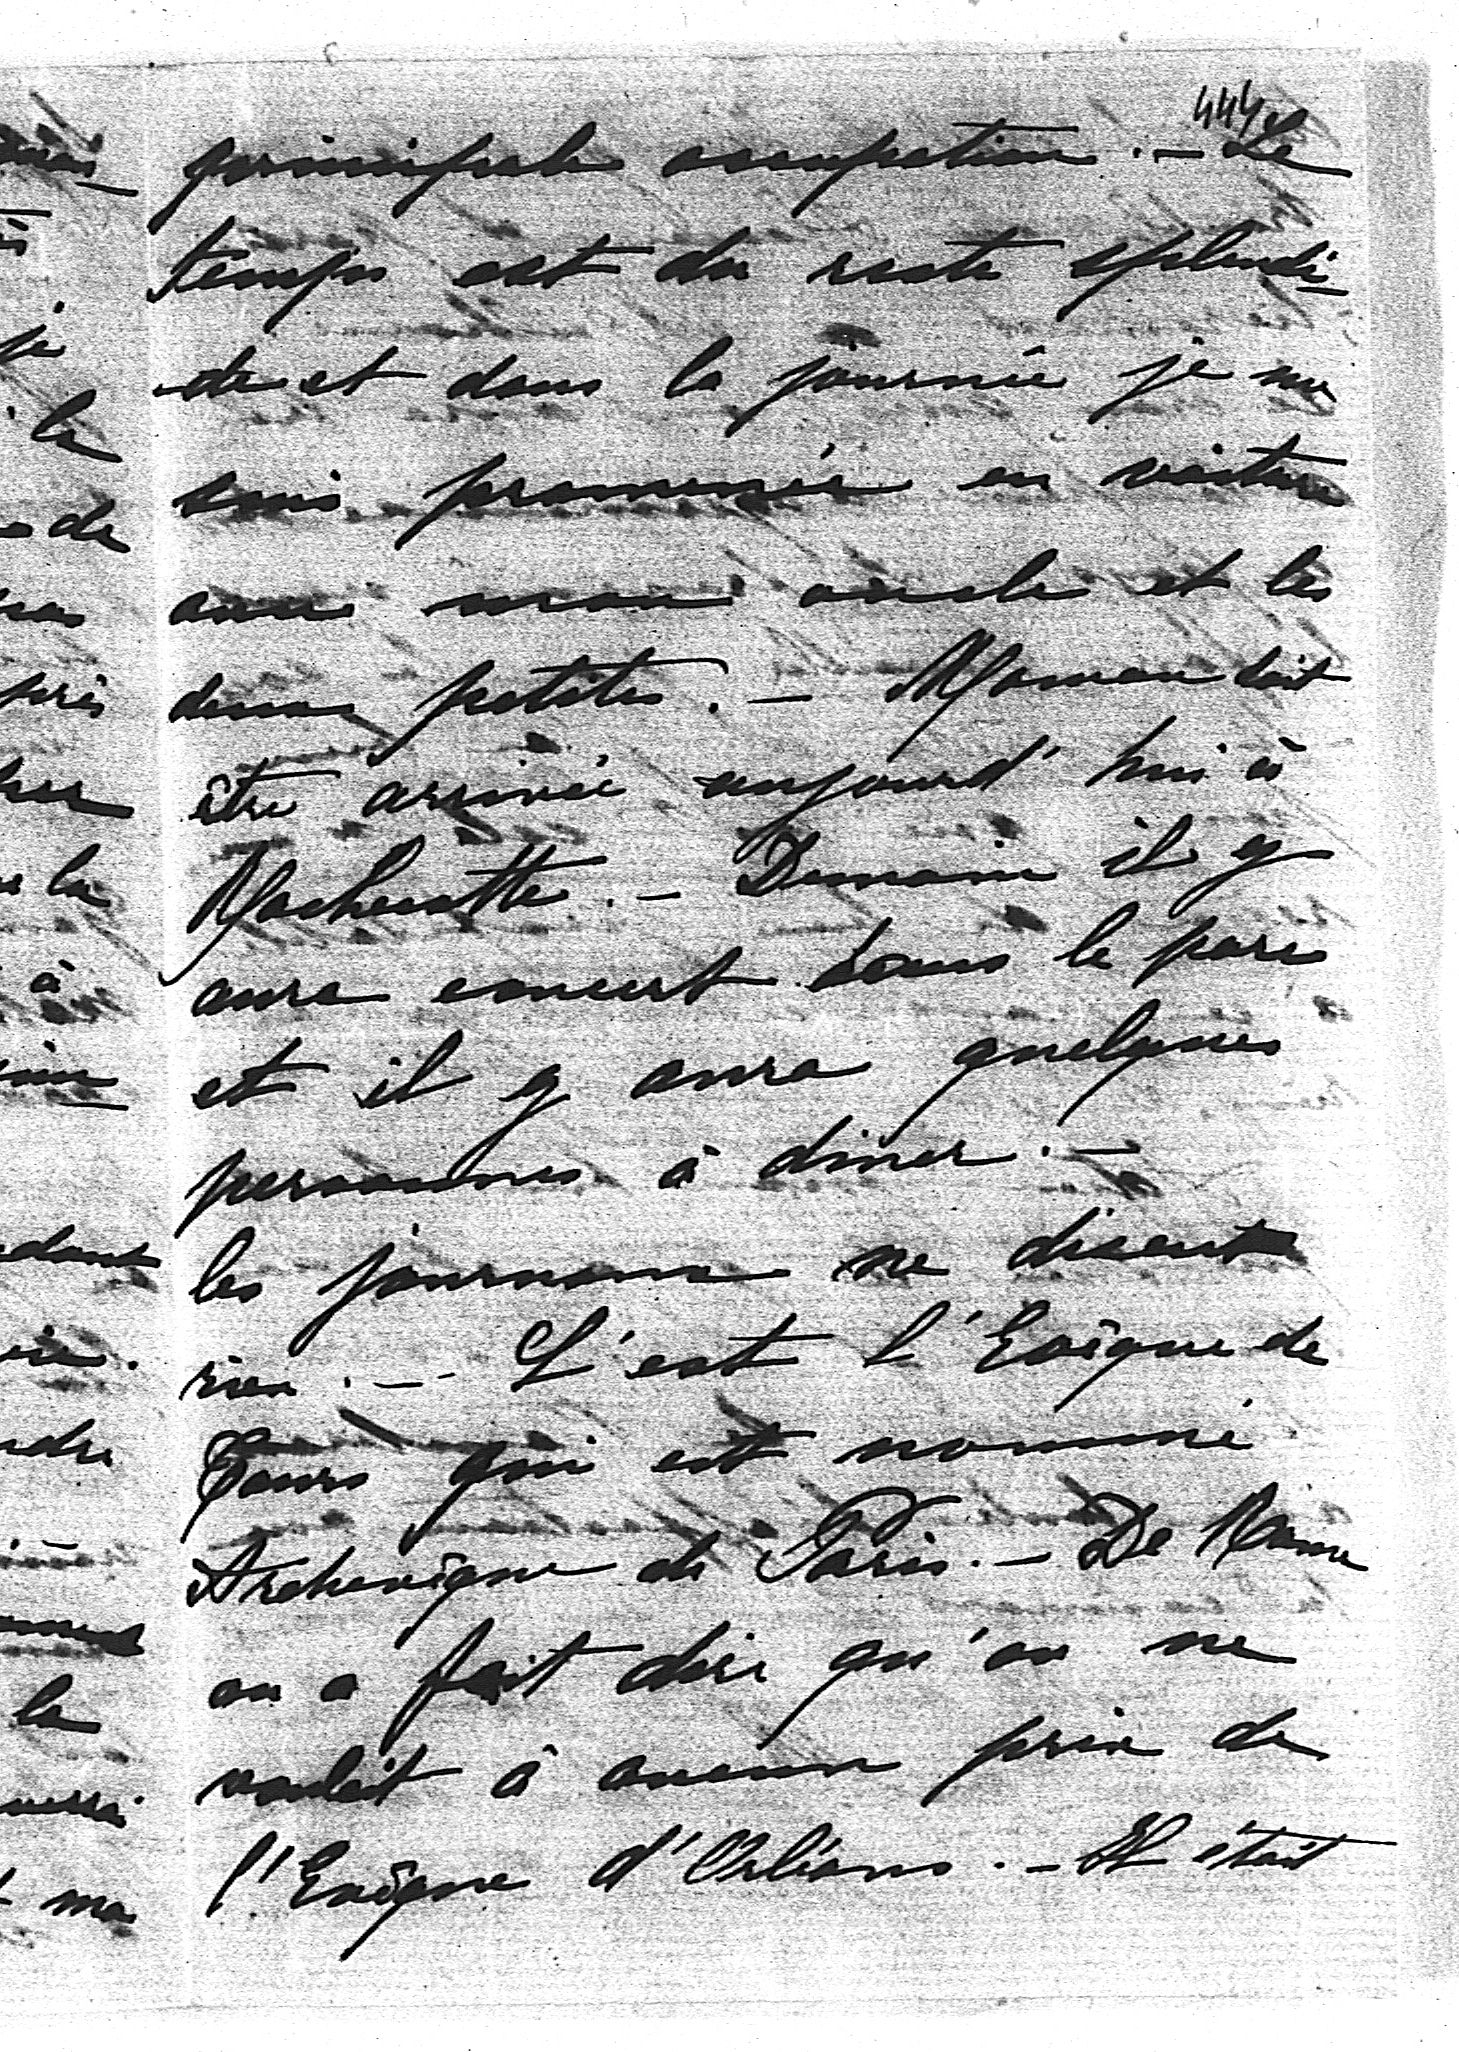 444
principale occupation. — Le
temps est du reste splendi-
de et dans la journée je me
suis promenée en voiture
avec mon oncle et les
deux petites. — Maman doit
être arrivée aujourd'hui à
Rochecotte. — Demain il y
aura concert dans le parc
et il y aura quelques
personnes à diner. —
les journaux ne disent
rien. — C'est l'Evêque de
Tours qui est nommé
Archevêque de Paris. — De Rome
on a fait dire qu'on ne
voulait à aucun prix de
l'Evêque d'Orléans. — Il était
je
la
de
près
la
à
la
ma